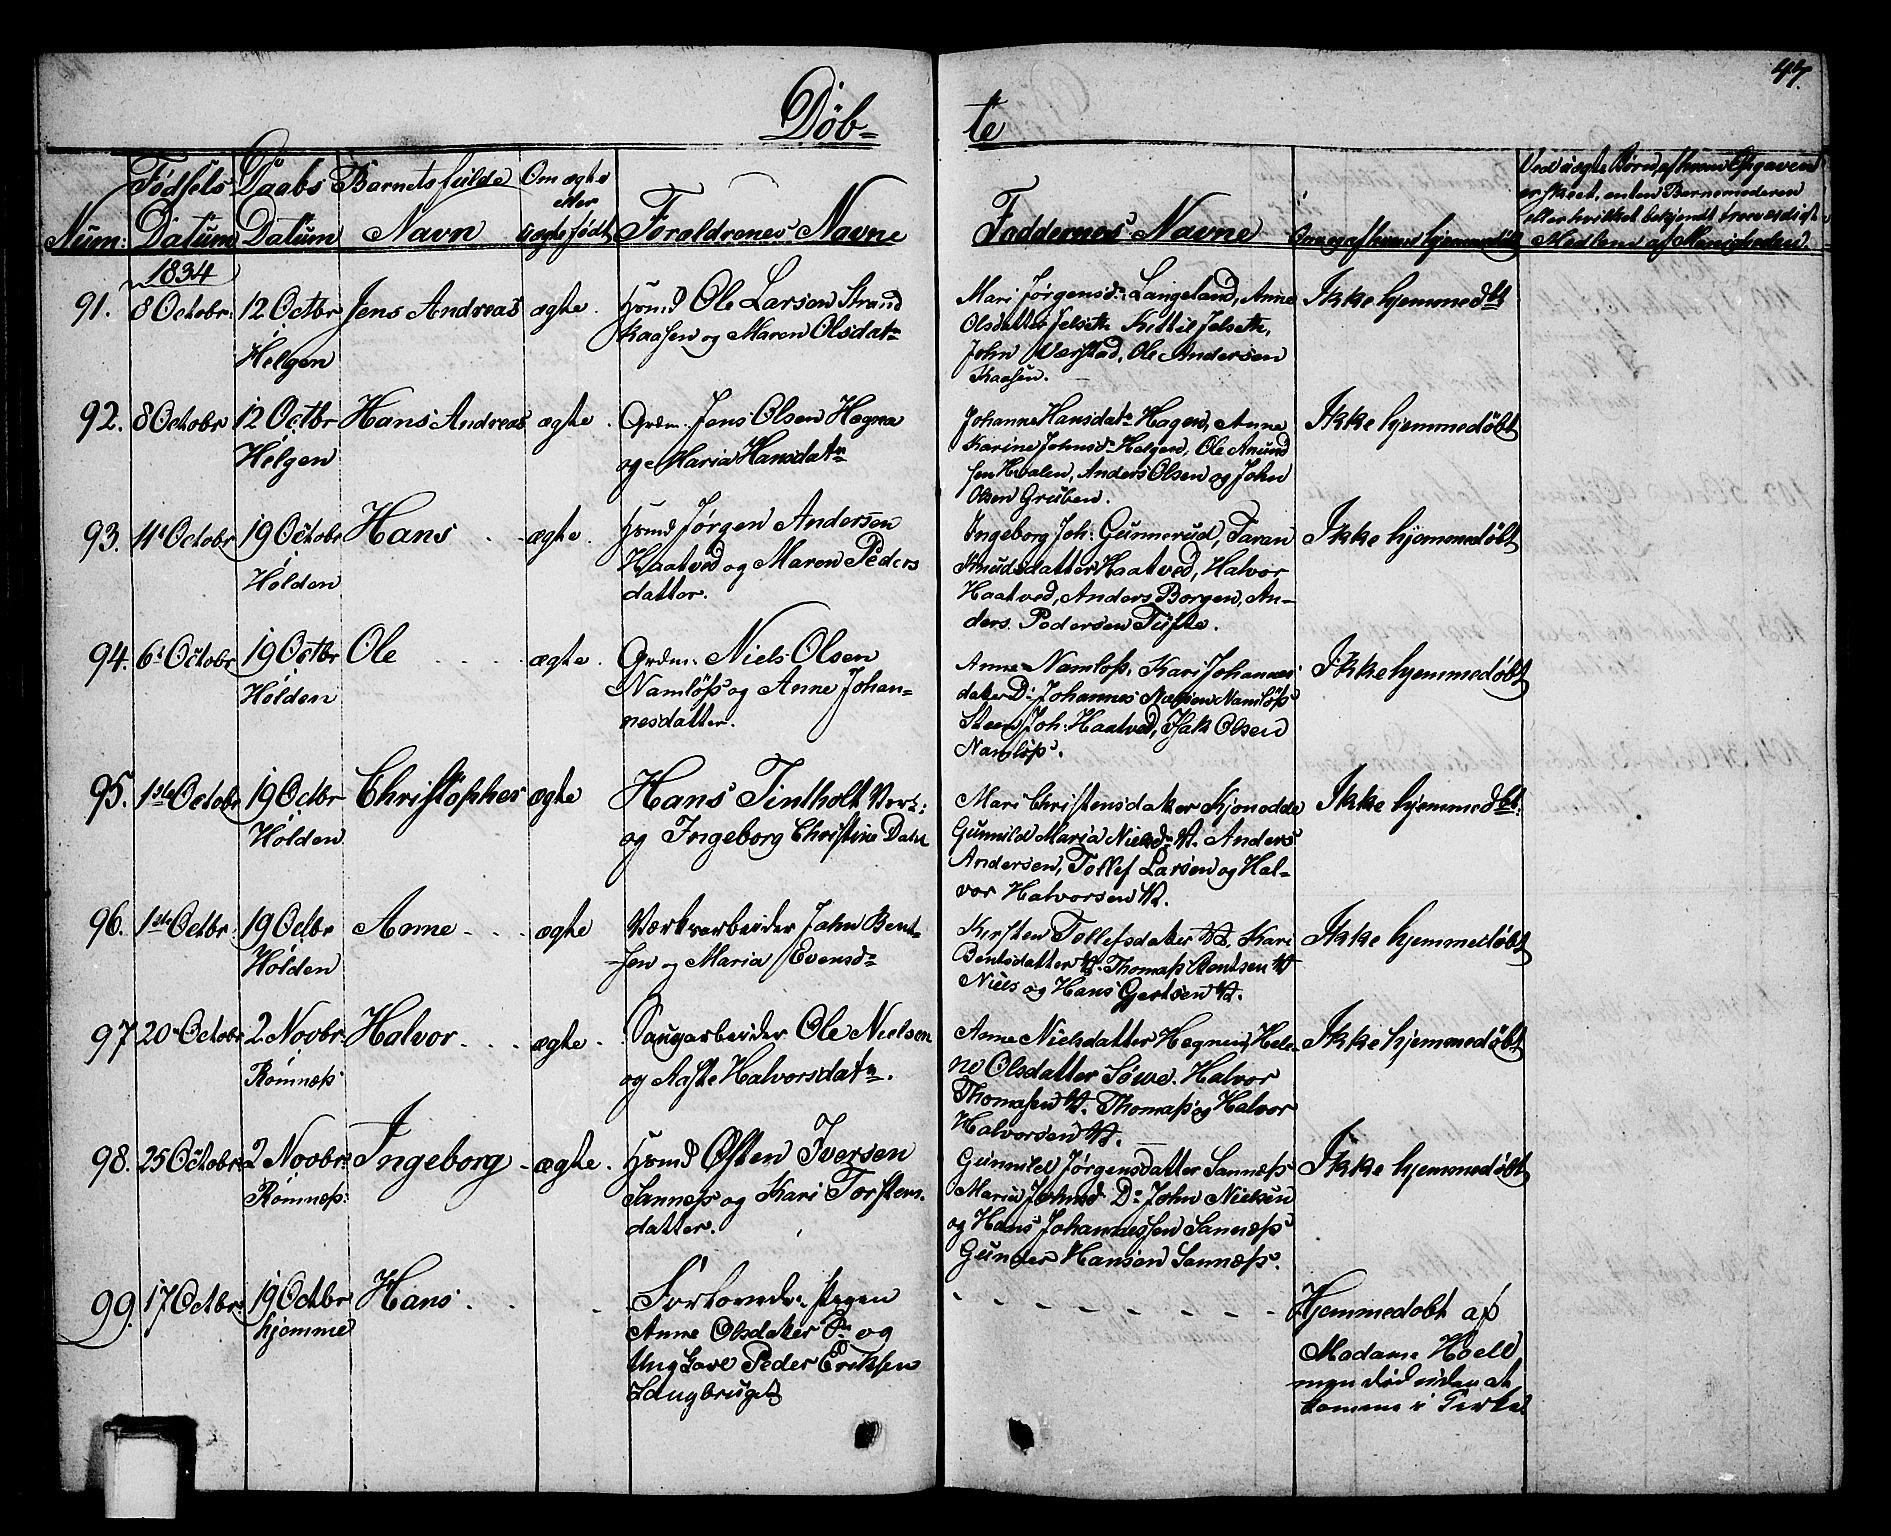 47.
Döb=
te
Num:
Födsels Datum
Daabs Datum
Barnets fulde Navn
Om ægte eller uægte født
Forældrenes Navne
Faddernes Navne
Om og af hvem hjemmedöbt
Ved uægte Børn, af hvem Opgaven
er skeet, enten Barnemoderen
eller hvilket bekjendt troeværdigt
Medlem af Menigheden.
1834
91.
8 Octobr.
12 Octbr
Helgen
Jens Andreas
ægte.
Hsmd Ole Larsen Strand
kaasen og Maren Olsdatr
Mari Jørgensd: Langeland, Anne
Olsdatter Jelseth Kittil Jelseth,
John Værstad, Ole Andersen
Kaasen.
Ikke hjemmedbt
92.
8 Octobr
12 Octbr
Helgen
Hans Andreas
ægte.
Grdm. Jens Olsen Hegna
og Maria Hansdatr
Johanne Hansdatr Hagen, Anne
Karine Johnsd. Helgen, Ole Amund
sen Hvalen, Anders Olsen og John
Olsen Gruben.
Ikke hjemmedöbt
93.
11t Octobr
19 Octobr
Holden
Hans
ægte.
Hsmd Jørgen Andersen
Haatved og Maren Peders
datter.
Ingeborg Joh: Gunnerud, Taran
Knudsdatter Haatved, Halvor
Haatved, Anders Borgen, An-
ders Pedersen Tufte.
Ikke hjemmedöbt
94.
6t Octobr
19 Octbr
Holden
Ole
ægte.
Grdm. Niels Olsen
Namløs og Anne Johan-
nesdatter.
Anne Namløs, Kari Johannes
datter Do Johannes Namløs
Steen Joh: Haatved, Isak Olsen
Namløs.
Ikke hjemmedöbt
95.
1ste Octobr
19 Octbr
Holden
Christopher
ægte
Hans Tintholt Verk:
og Ingeborg Christine Datr
Mari Christensdatter Kjonodde
Gunnild Maria Nielsdr V. Anders
Andersen, Tollef Larsen og Hal-
vor Halvorsen V.
Ikke hjemmedbt.
96.
1ste Octbr.
19 Octbr
Holden
Anne
ægte
Værksarbeider John Bent-
sen og Maria Evensdr
Kirsten Tollefsdatter V. Kari
Bentsdatter V. Thomas Bentsen V
Niels og Hans Gjertsen V.
Ikke hjemmedöbt
97
20 Octobr
2 Novbr.
Romnæs
Halvor
ægte.
Saugarbeider Ole Nielsen
og Aaste Halvorsdatr.
Anne Nielsdatter Hegnen, Hele-
ne Olsdatter Söwe. Halvor
Thomasen V. Thomas og Halvor
Halvorsen V.
Ikke hjemmedöbt
98.
25 Octobr
2 Novbr:
Romnæs:
Ingeborg
ægte.
Hsmd Østen Iversen
Sannæs og Kari Torstens
datter.
Gunnild Jørgensdatter Sannæs
Maria Johnsd Do John Nielsen
og Hans Johannessen Sannæs
Gunder Hansen Sannæs.
Ikke hjemmedöbt
99.
17 Octbr.
19 Octbr
hjemme
Hans
Anne Olsdatter Pr og
Ung Karl Peder Eriksen
Saugbruget
Hjemmedobt af
Madame Hoell
men död inden at
komme i Kirke